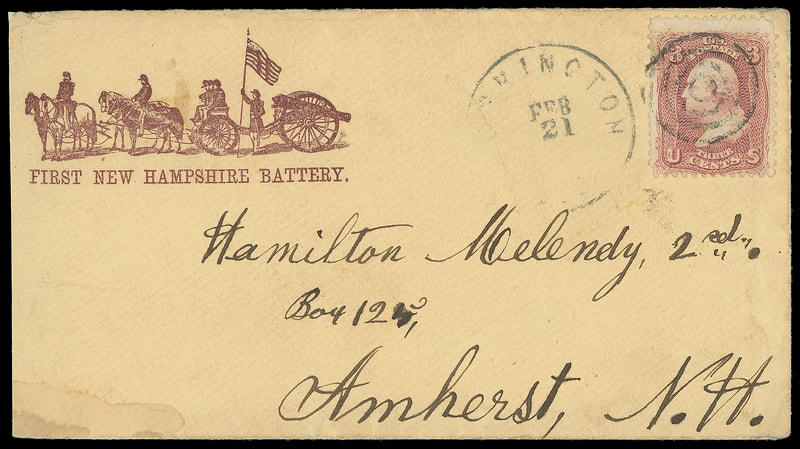 FIRST NEW HAMPSHIRE BATTERY.
MINGTON
FEB
21
3 3
U.S.
POSTAGE
THREE
U CENTS S
Hamilton Melendy, 2nd.
Box 125,
Amherst, N.H.